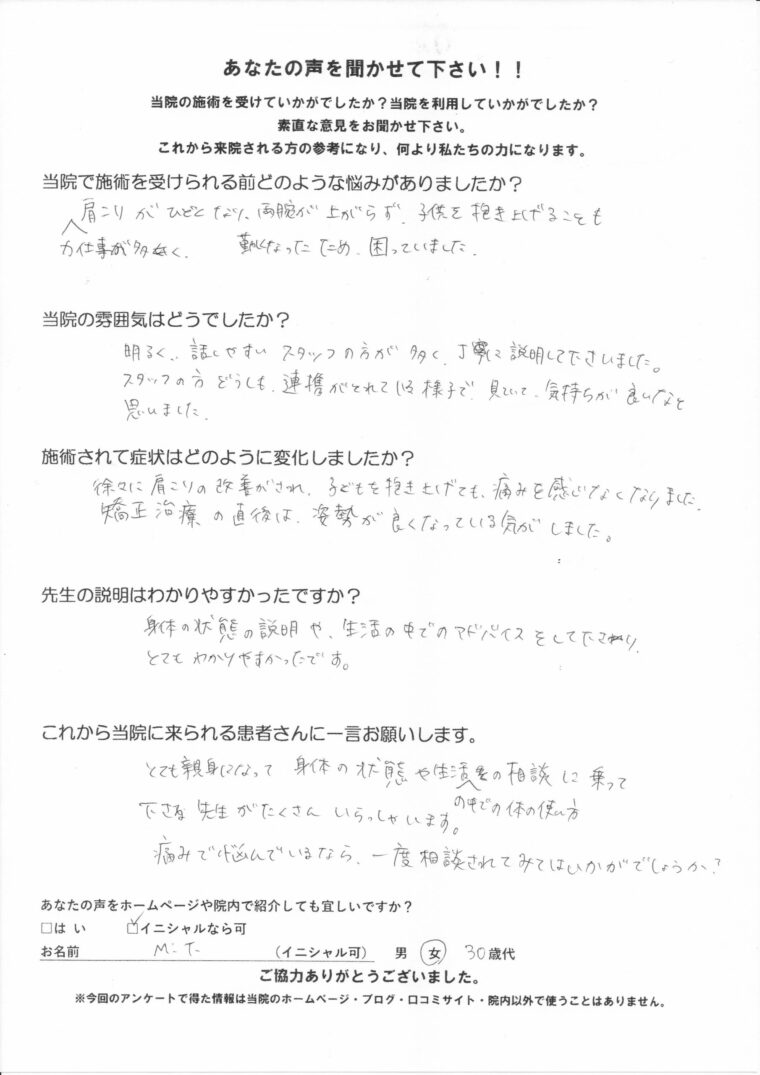 あなたの声を聞かせて下さい！！
当院の施術を受けていかがでしたか？当院を利用していかがでしたか？
素直な意見をお聞かせ下さい。
これから来院される方の参考になり、何より私たちの力になります。
当院で施術を受けられる前どのような悩みがありましたか？
肩こりがひどくなり、両腕が上がらず、子供を抱き上げることも
力仕事が多く、 難しくなったため、困っていました。
当院の雰囲気はどうでしたか？
明るく、話しやすいスタッフの方が多く、丁寧に説明して下さいました。
スタッフの方どうしも、連携がとれている様子で、見ていて、気持ちが良いなと
思いました。
施術されて症状はどのように変化しましたか？
徐々に肩こりの改善がされ、子どもを抱き上げても、痛みを感じなくなりました。
矯正治療の直後は、姿勢が良くなっている気がしました。
先生の説明はわかりやすかったですか？
身体の状態の説明や、生活の中でのアドバイスをして下さり、
とてもわかりやすかったです。
これから当院に来られる患者さんに一言お願いします。
とても親身になって 身体の状態や生活の相談に乗って
の中での体の使い方
下さる先生がたくさんいらっしゃいます。
痛みで悩んでいるなら、一度相談されてみてはいかがでしょうか？
あなたの声をホームページや院内で紹介しても宜しいですか？
□はい ☑イニシャルなら可
お名前 M.T. （イニシャル可） 男 女 30歳代
ご協力ありがとうございました。
※今回のアンケートで得た情報は当院のホームページ・ブログ・口コミサイト・院内以外で使うことはありません。